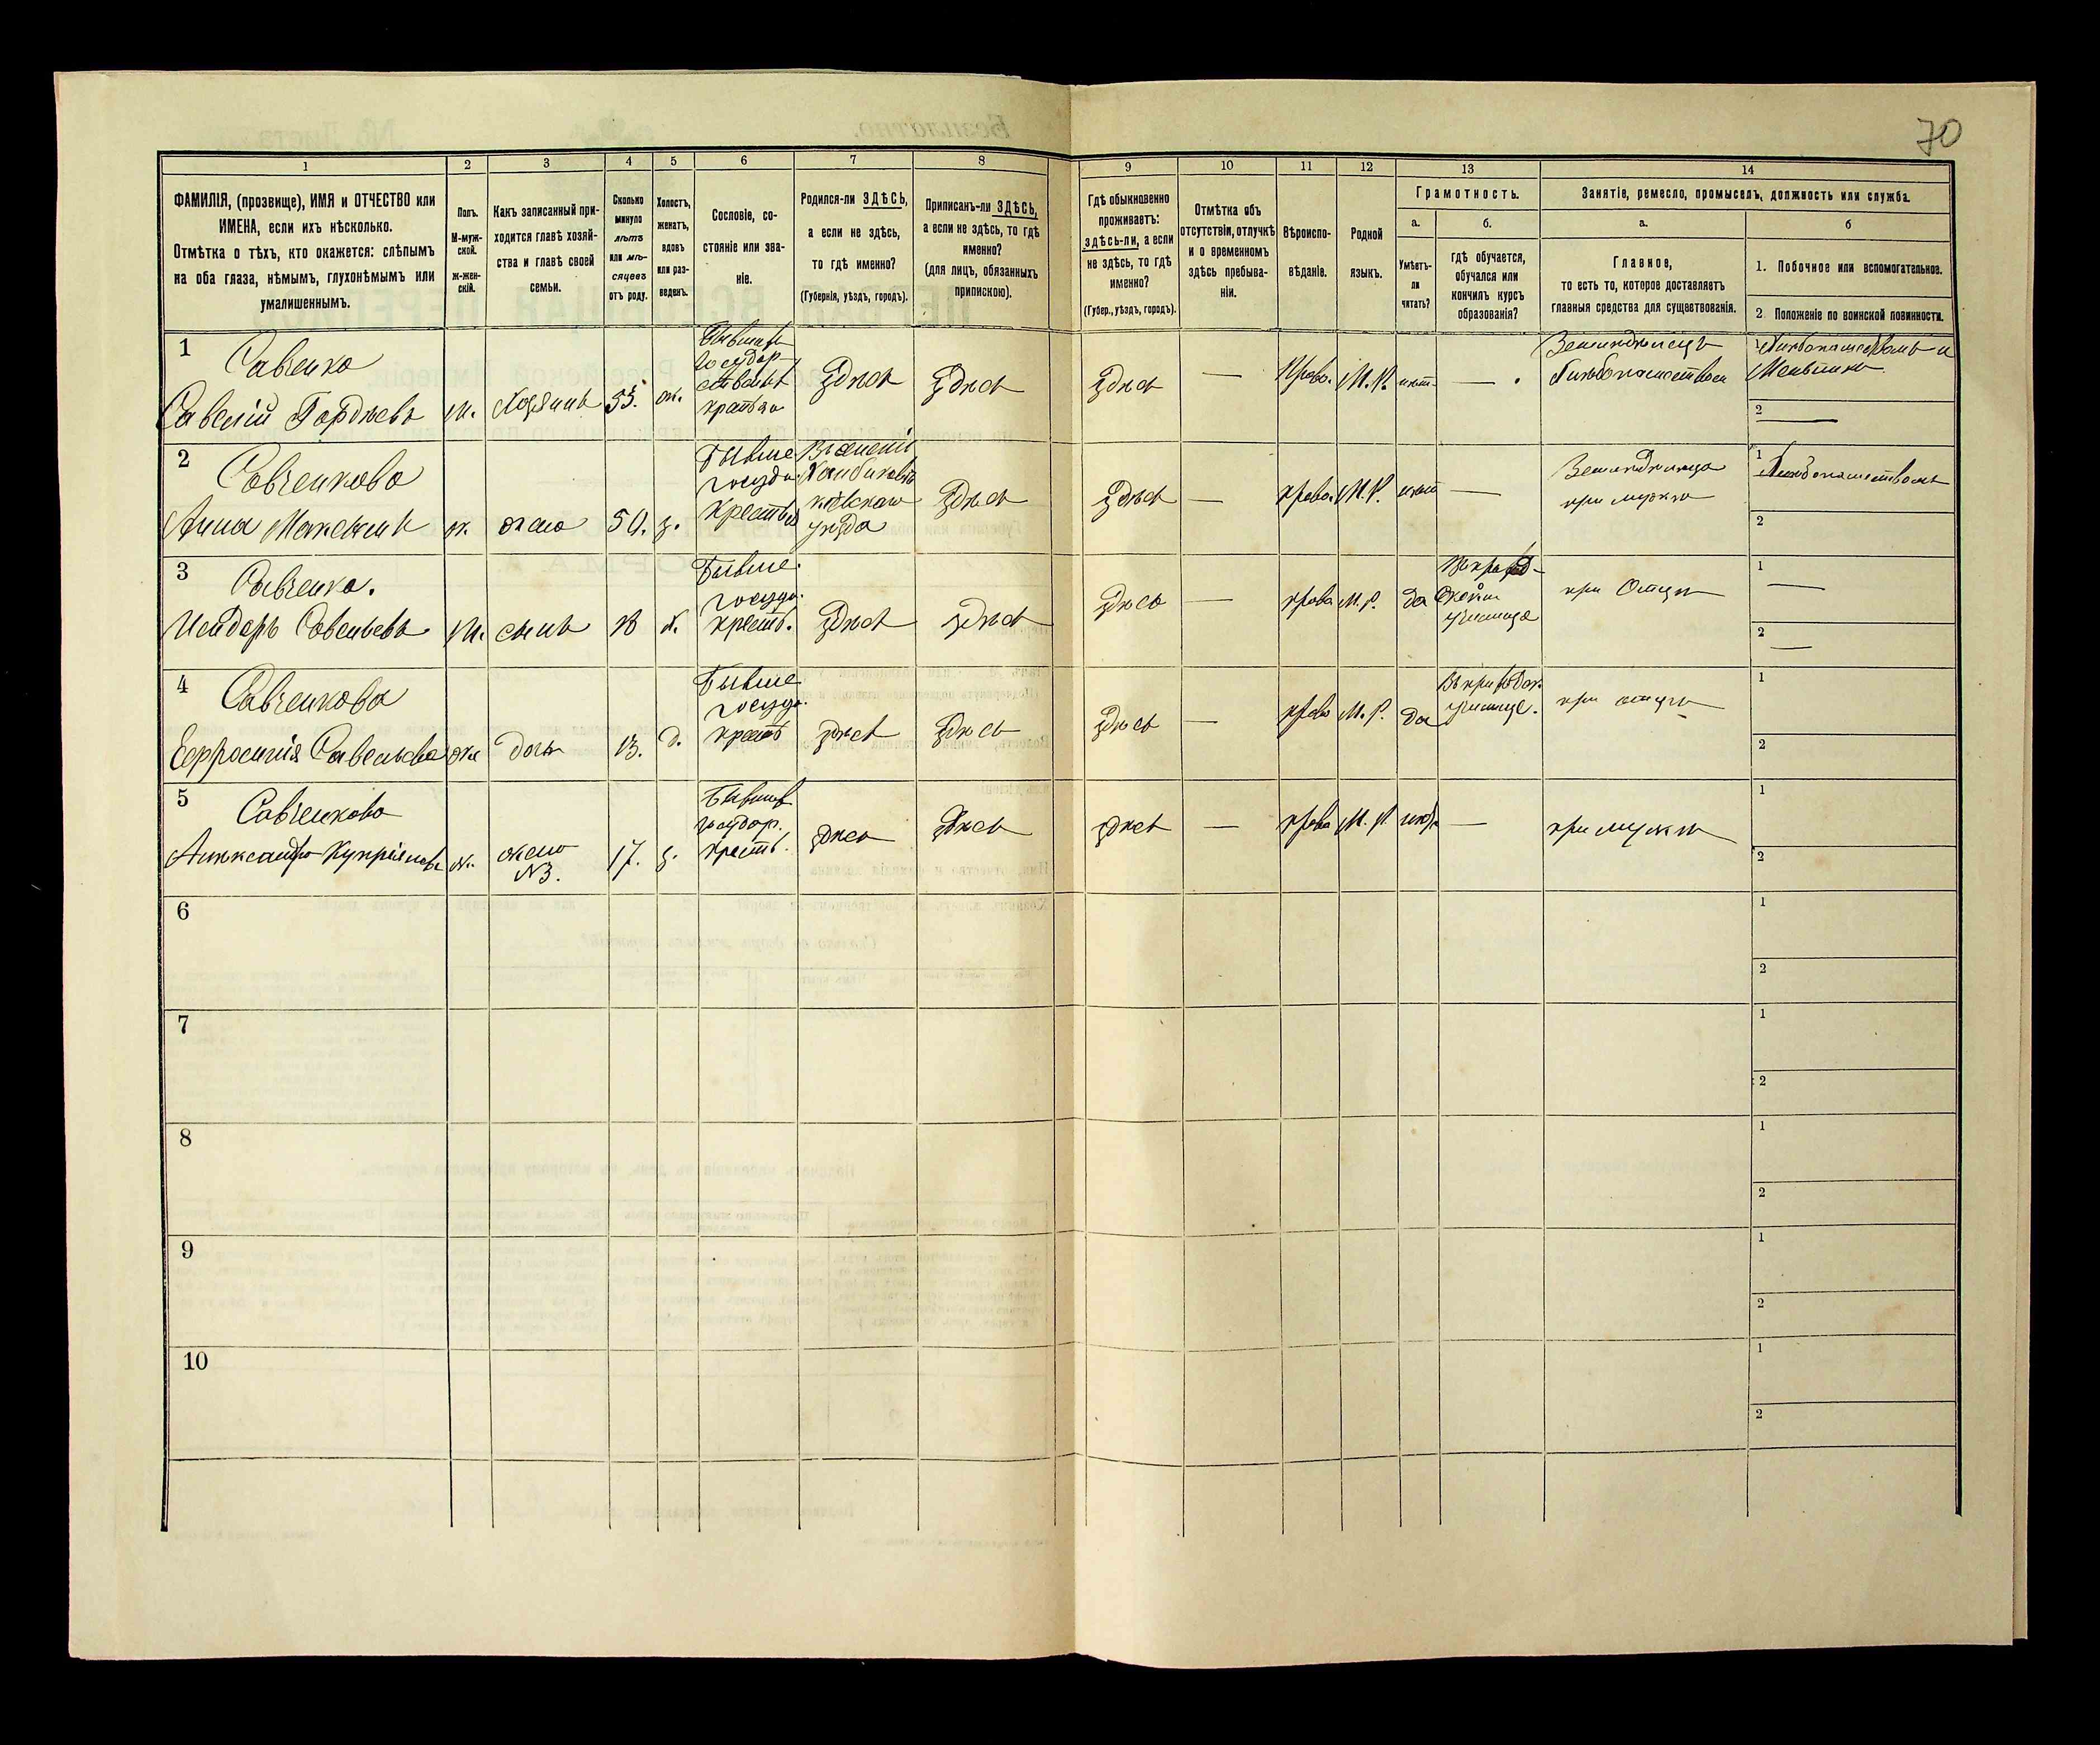 70
1 2 3 4 5 6 7 8 9 10 11 12 13 14
ФАМИЛІЯ, (прозвище), ИМЯ и ОТЧЕСТВО или
ИМЕНА, если ихъ нѣсколько.
Отмѣтка о тѣхъ, кто окажется: слѣпымъ
на оба глаза, нѣмымъ, глухонѣмымъ или
умалишеннымъ.
Полъ.
М-муж-
ской.
ж-жен-
скій.
Какъ записанный при-
ходится главѣ хозяй-
ства и главѣ своей
семьи.
Сколько
минуло
лѣтъ
или мѣ-
сяцевъ
отъ роду.
Холостъ,
женатъ,
вдовъ
или раз-
веденъ.
Сословіе, со-
стояніе или зва-
ніе.
Родился-ли ЗДѢСЬ,
а если не здѣсь,
то гдѣ именно?
(Губернія, уѣздъ, городъ).
Приписанъ-ли ЗДѢСЬ,
а если не здѣсь, то гдѣ
именно?
(для лицъ, обязанныхъ
припискою).
Гдѣ обыкновенно
проживаетъ:
здѣсь-ли, а если
не здѣсь, то гдѣ
именно?
(Губер., уѣздъ, городъ).
Отмѣтка объ
отсутствіи, отлучкѣ
и о временномъ
здѣсь пребыва-
ніи.
Вѣроиспо-
вѣданіе.
Родной
языкъ.
Грамотность.
а.
Умѣетъ-
ли
читать?
б.
гдѣ обучается,
обучался или
кончилъ курсъ
образованія?
Занятіе, ремесло, промыселъ, должность или служба.
а.
Главное,
то есть то, которое доставляетъ
главныя средства для существованія.
б
1. Побочное или вспомогательное.
2. Положеніе по воинской повинности.
1
Савченко
Савелій Гордѣевъ
м.
Хозяинъ
55.
ж.
здѣсь
здѣсь
здѣсь
—
Право.
М.Р.
нѣт.
—
Земледѣлецъ
Хлѣбопашествомъ
1
2
—
2
Савченкова
Анна
ж.
жена
50.
з.
Бывше
госуда.
крестья
уѣзда
здѣсь
здѣсь
—
права
М.Р.
нѣт
—
Земледѣлица
при мужѣ
1 Хлѣбопашествомъ
2
3
Савченко.
Исидоръ Савельевъ
м.
сынъ
18
ж.
Бывше.
госуда.
крестъ.
здѣсь
здѣсь
здѣсь
—
права
М.Р.
да
училище
при Отцѣ
1 —
2 —
4
Савченкова
Евфросинія Савельева
жен
дочь
13.
д.
Бывше
госуда.
крестъ
здѣсь
здѣсь
здѣсь
—
право
М.Р.
да
училище.
при отцѣ
1
2
5
Савченкова
Александра Купріянова
ж.
жена
№3.
17.
з.
Бывшев
государ.
крестъ.
здѣсь
здѣсь
здѣсь
—
права
М.Р.
—
при мужѣ
1
2
6
1
2
7
1
2
8
1
2
9
1
2
10
1
2